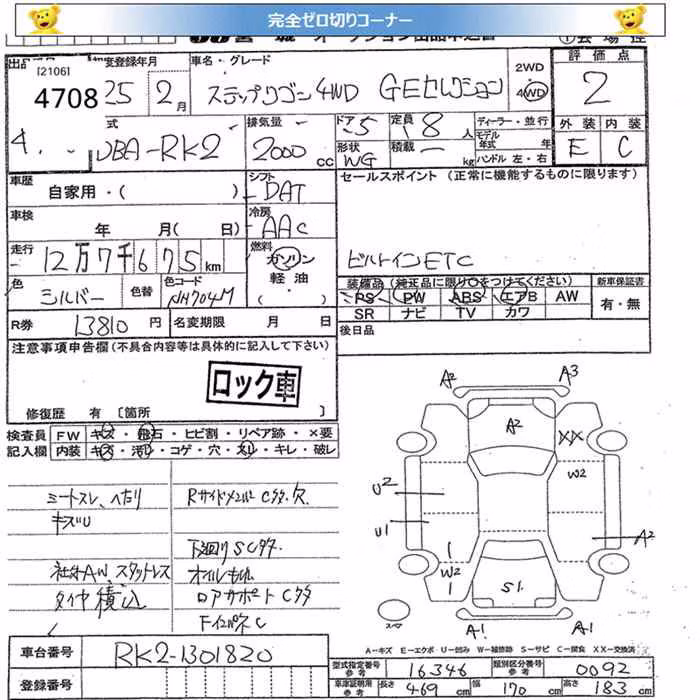 完全ゼロ切りコーナー
出品
[2106]
4708
初度登録年月
25 2月
車名・グレード
ステップワゴン4WD GEセレクション
2WD
4WD
評価点
2
外装 内装
E C
DBA-RK2
排気量
2000cc
ドア 5
形状 WG
定員 8人
積載 kg
ディーラー・並行
モデル年式 年
ハンドル 左・右
車歴 自家用・( )
シフト DAT
セールスポイント (正常に機能するものに限ります)
車検 年 月( 日)
冷房 AAC
走行 12万7千675km
燃料 ガソリン・軽油・( )
ビルトインETC
色 シルバー
色替
色コード NH704M
装備品 (純正品に限り○をつけてください)
新車保証書
PS PW ABS エアB AW
有・無
SR ナビ TV カワ
R券 13810円 名変期限 月 日
後日品
注意事項申告欄 (不具合内容等は具体的に記入して下さい)
ロック車
修復歴 有 [箇所 ]
検査員 FW キズ・飛石・ヒビ割・リペア跡・×要
記入欄 内装 キズ・汚レ・コゲ・穴・スレ・キレ・破レ
シートスレ、へたり
キズU
社外AW、スタットレス
タイヤ積込
RサイドメンバーCタタ、穴
下廻りSCタタ
オイルもれ
ロアサポートCタタ
FインパネC
A2 A3
A2
XX
W2
U2
U1
A2
W2
S1
A1 A1
スペア
A-キズ E-エクボ U-凹み W-補修跡 S-サビ C-腐食 XX-交換済
車台番号 RK2-1301820
登録番号
型式指定番号 参考 16346 類別区分番号 参考 0092
車庫証明用 参考 長さ 469cm 幅 170cm 高さ 183cm